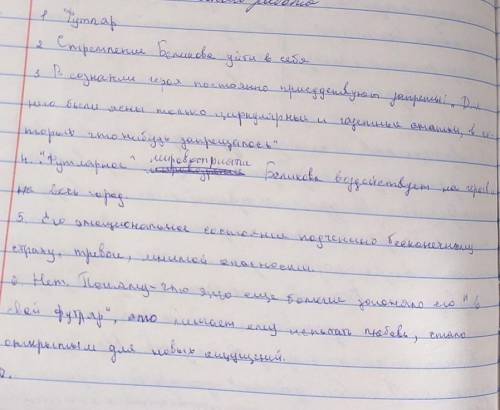 работа
1. Футляр
2. Стремление Беликова уйти в себя
3. В сознании героя постоянно присудствуют запреты: "Для
него были ясны только циркулярные и газетные статьи, в ко
торых что-нибудь запрещалось"
4. "Футлярное" мировосприяти Беликова воздействует на
на весь город
5. Его эмоциональное состояние подчинено бесконечному
страху, тревоге, мнимой опасностью.
6 Нет. Потому-что это еще больше его "в
свой футляр", это мешает ему испытать любовь, стало
открытым для новых ощущений.